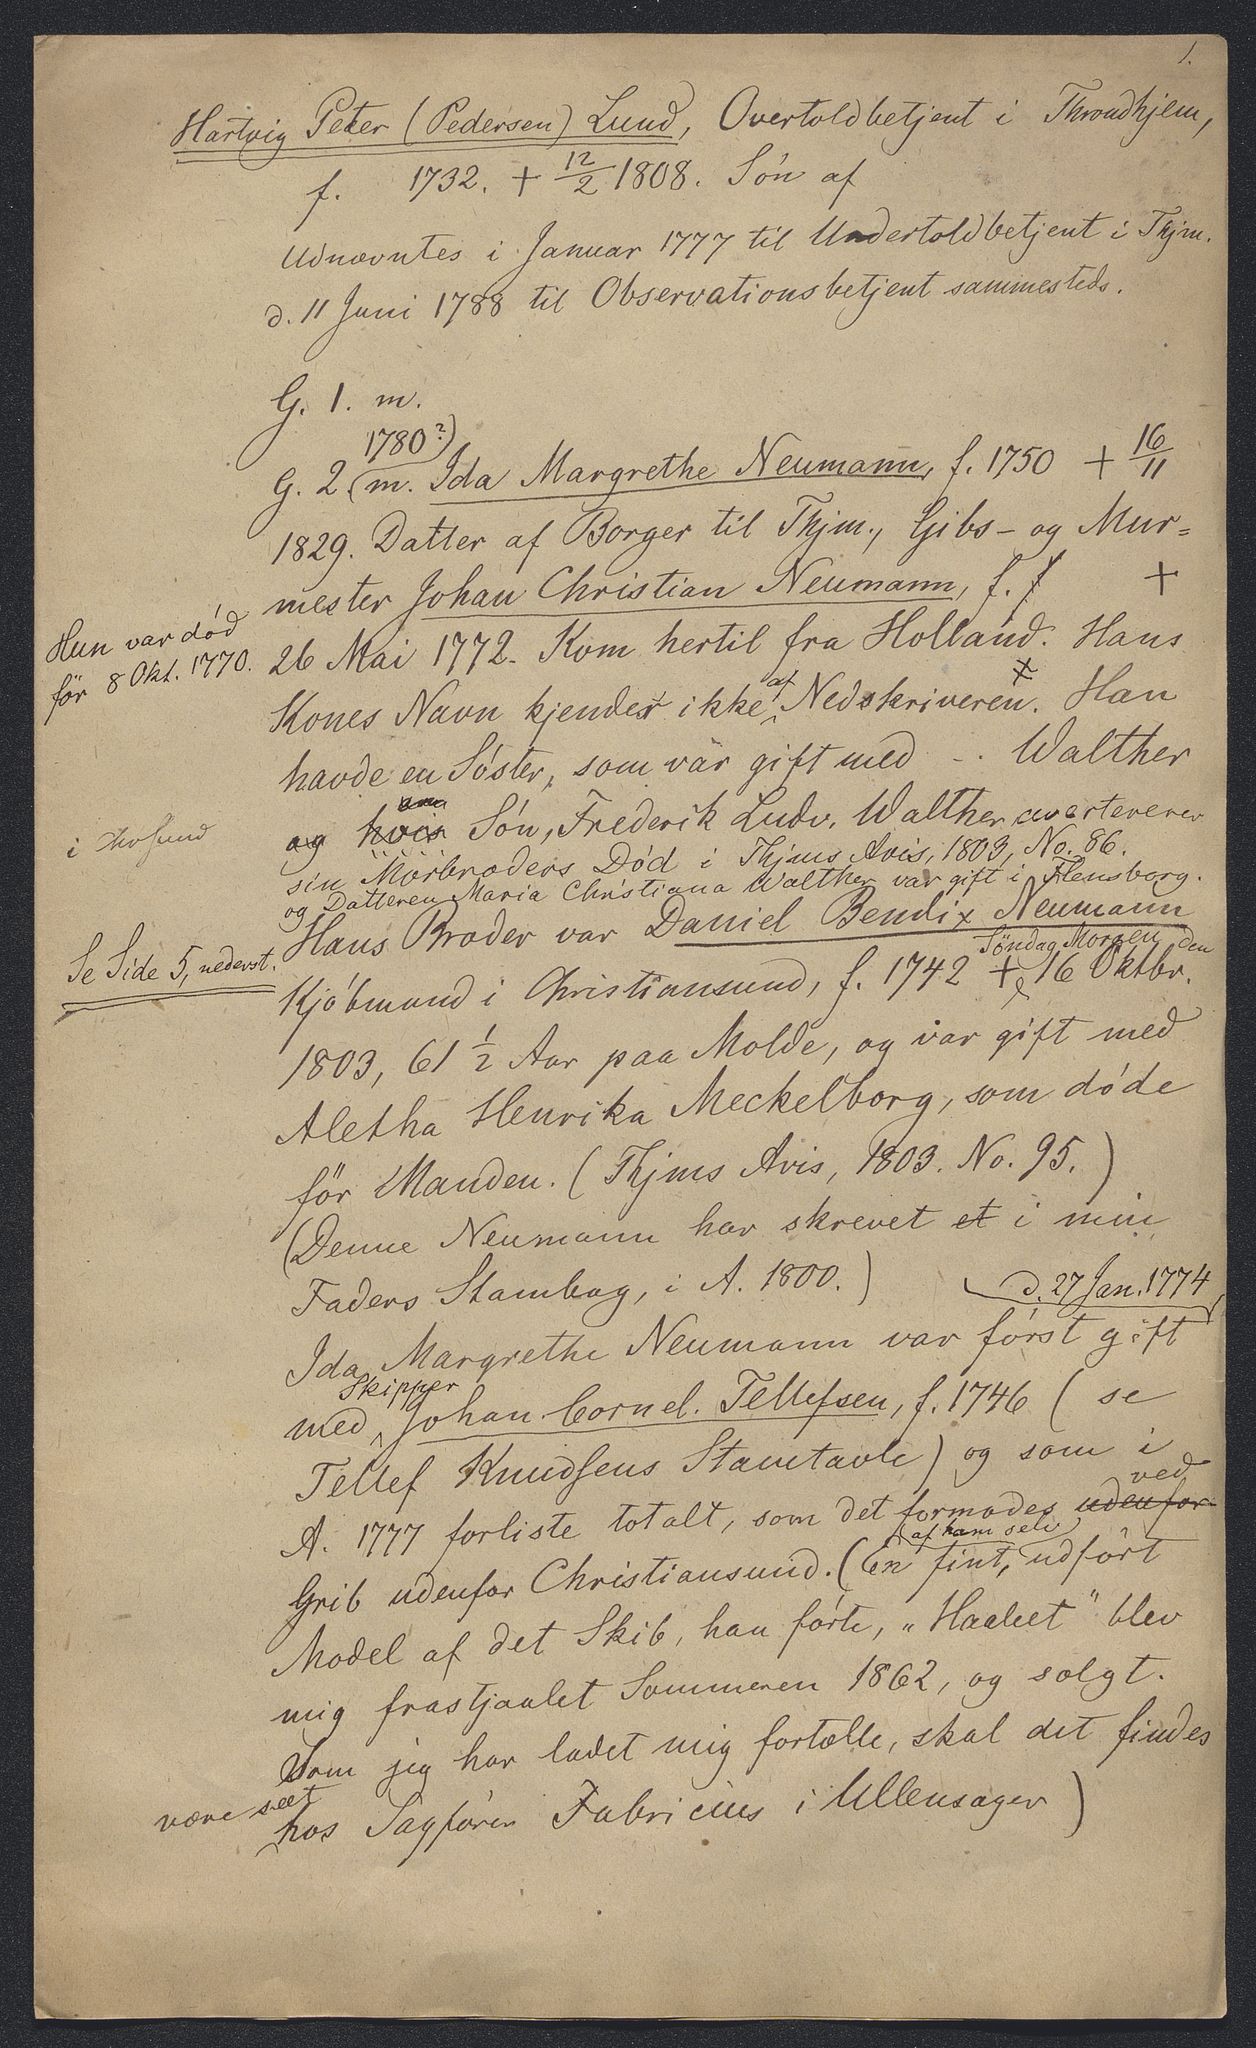 1.
Hartvig Peter (Pedersen) Lund, Overtoldbetjent i Throndhjem,
f. 1732. + 12/2 1808. Søn af
Udnævntes i Januar 1777 til Undertoldbetjent i Thjm.
d. 11 Juni 1788 til Observationsbetjent sammesteds.
G. 1. m.
1780?)
G. 2 (m. Ida Margrethe Neumann, f. 1750 + 16/11
1829. Datter af Borger til Thjm., Gibs- og Mur=
mester Johan Christian Neumann, f. +
Hun var død
før 8 Okt. 1770.
26 Mai 1772. Kom hertil fra Holland. Hans
Kones Navn kjendes ikke af Nedskriveren. Han
havde en Søster, som var gift med -. Walther
i
og hvis Søn, Frederik Ludv. Walther averterer
sin Morbroders Død i Thjms Avis, 1803, No. 86.
og Datteren Maria Christiana Walther var gift i Flensborg.
Hans Broder var Daniel Bendix Neumann
Se Side 5, nederst.
Søndag Morgen den
Kjøbmand i Christiansund, f. 1742 + 16 Oktbr.
1803, 61 1/2 Aar paa Molde, og var gift med
Aletha Henrika Meckelborg, som døde
før Manden. (Thjms Avis, 1803. No. 95.)
(Denne Neumann har skrevet et i min
Faders Stambog, i A. 1800.)
d. 27 Jan. 1774,
Ida Margrethe Neumann var først gift
Skipper
med Johan Cornel. Tellefsen, f. 1746 (se
Tellef Knudsens Stamtavle) og som i
ved
A. 1777 forliste totalt, som det formodes udenfor
af ham selv
Grib udenfor Christiansund. (En fint, udført
Model af det Skib, han førte, „Haabet" blev
mig frastjaalet Sommeren 1862, og solgt.
Som jeg har ladet mig fortælle, skal det findes
være seet
hos Sagfører Fabricius i Ullensager)